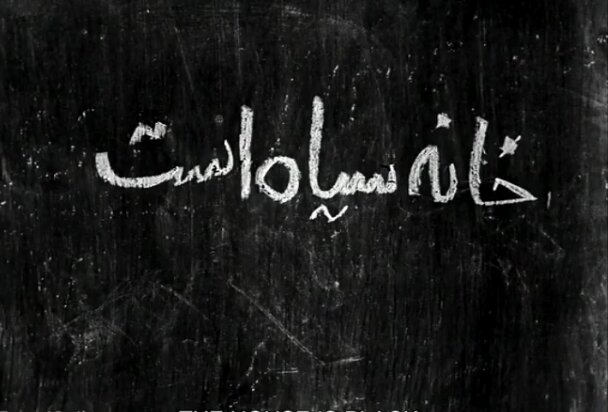 خانه سیاه است
THE HOUSE IS BLACK